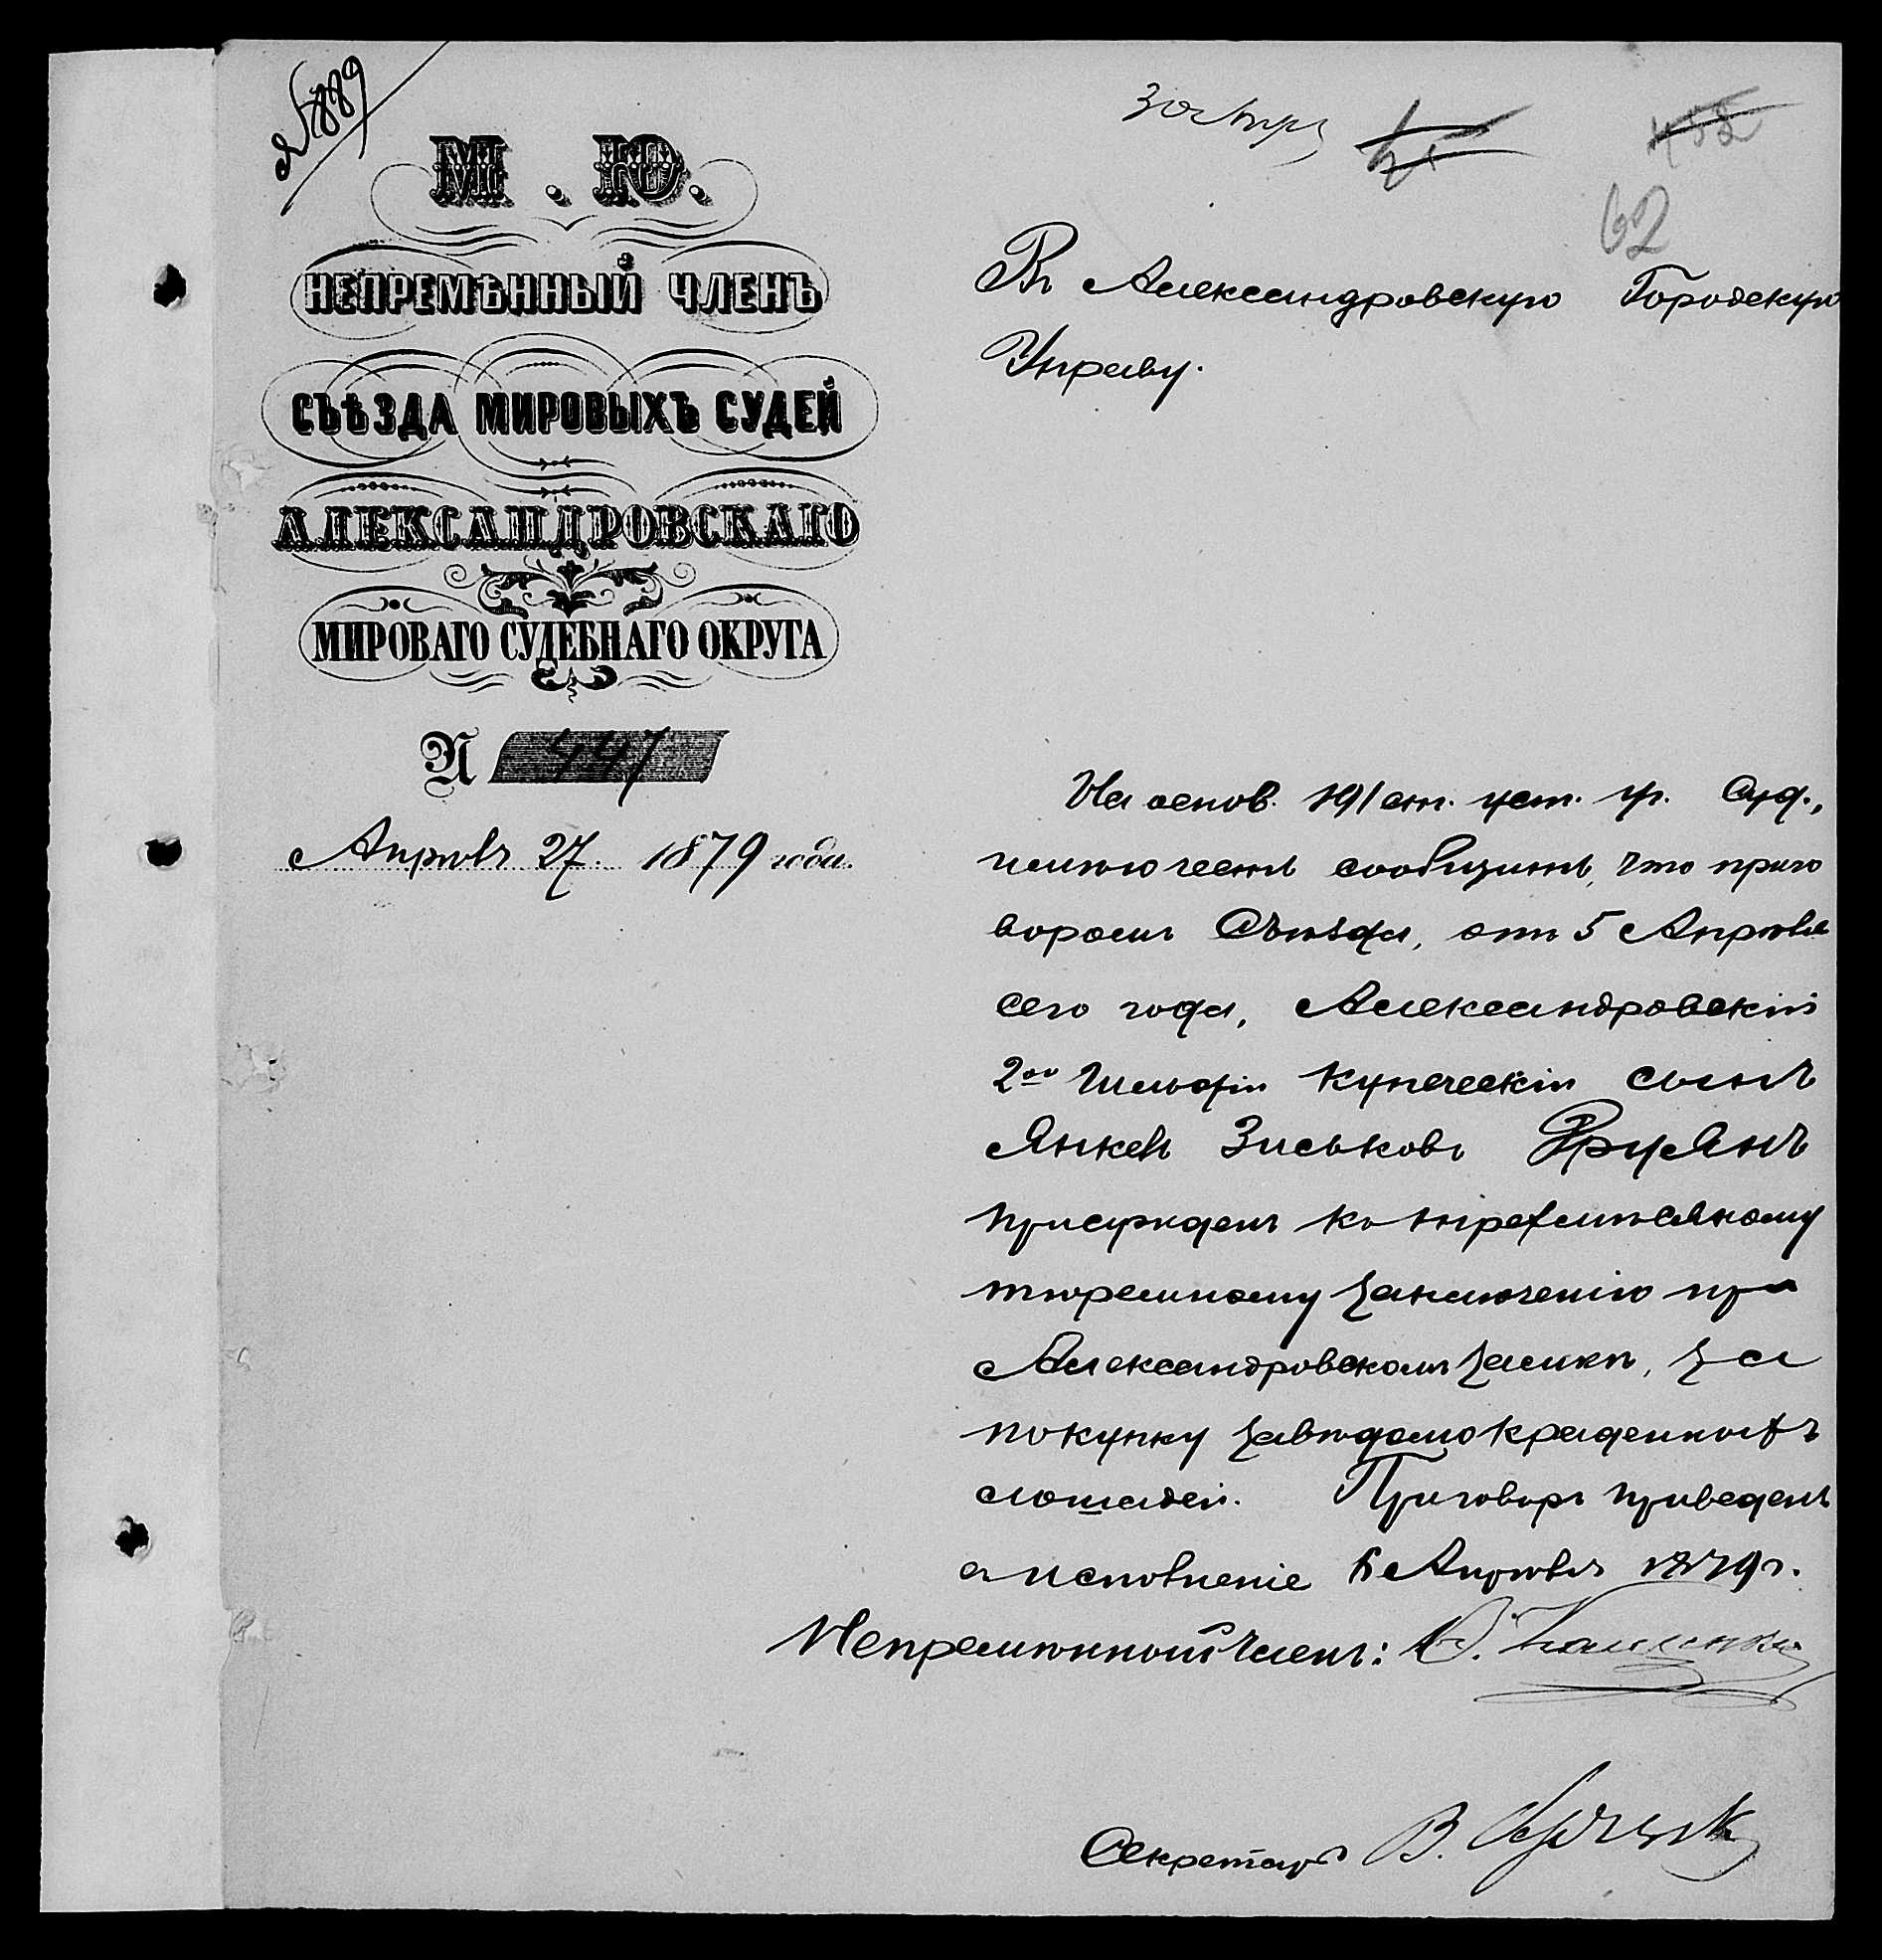 № 889
30 Апр
62
М. Ю.
НЕПРЕМѢННЫЙ ЧЛЕНЪ
СЪѢЗДА МИРОВЫХЪ СУДЕЙ
АЛЕКСАНДРОВСКАГО
МИРОВАГО СУДЕБНАГО ОКРУГА
№ 447
Апрѣля 27. 1879 года.
Въ Александровскую Городскую
Управу.
На основ. 191 ст. уст. уг. Суд.,
имѣю честь сообщить, что приго
воромъ Съѣзда, отъ 5 Апрѣля
сего года, Александровскій
2ой Гильдіи купеческій сынъ
Янкель Зиськовъ
присужденъ къ трехмѣсячному
тюремному заключенію при
Александровскомъ замкѣ, за
покупку завѣдомо краденныхъ
лошадей. Приговоръ приведенъ
въ исполненіе 6 Апрѣля 1879 г.
Непремѣнный Членъ:
Секретарь В.